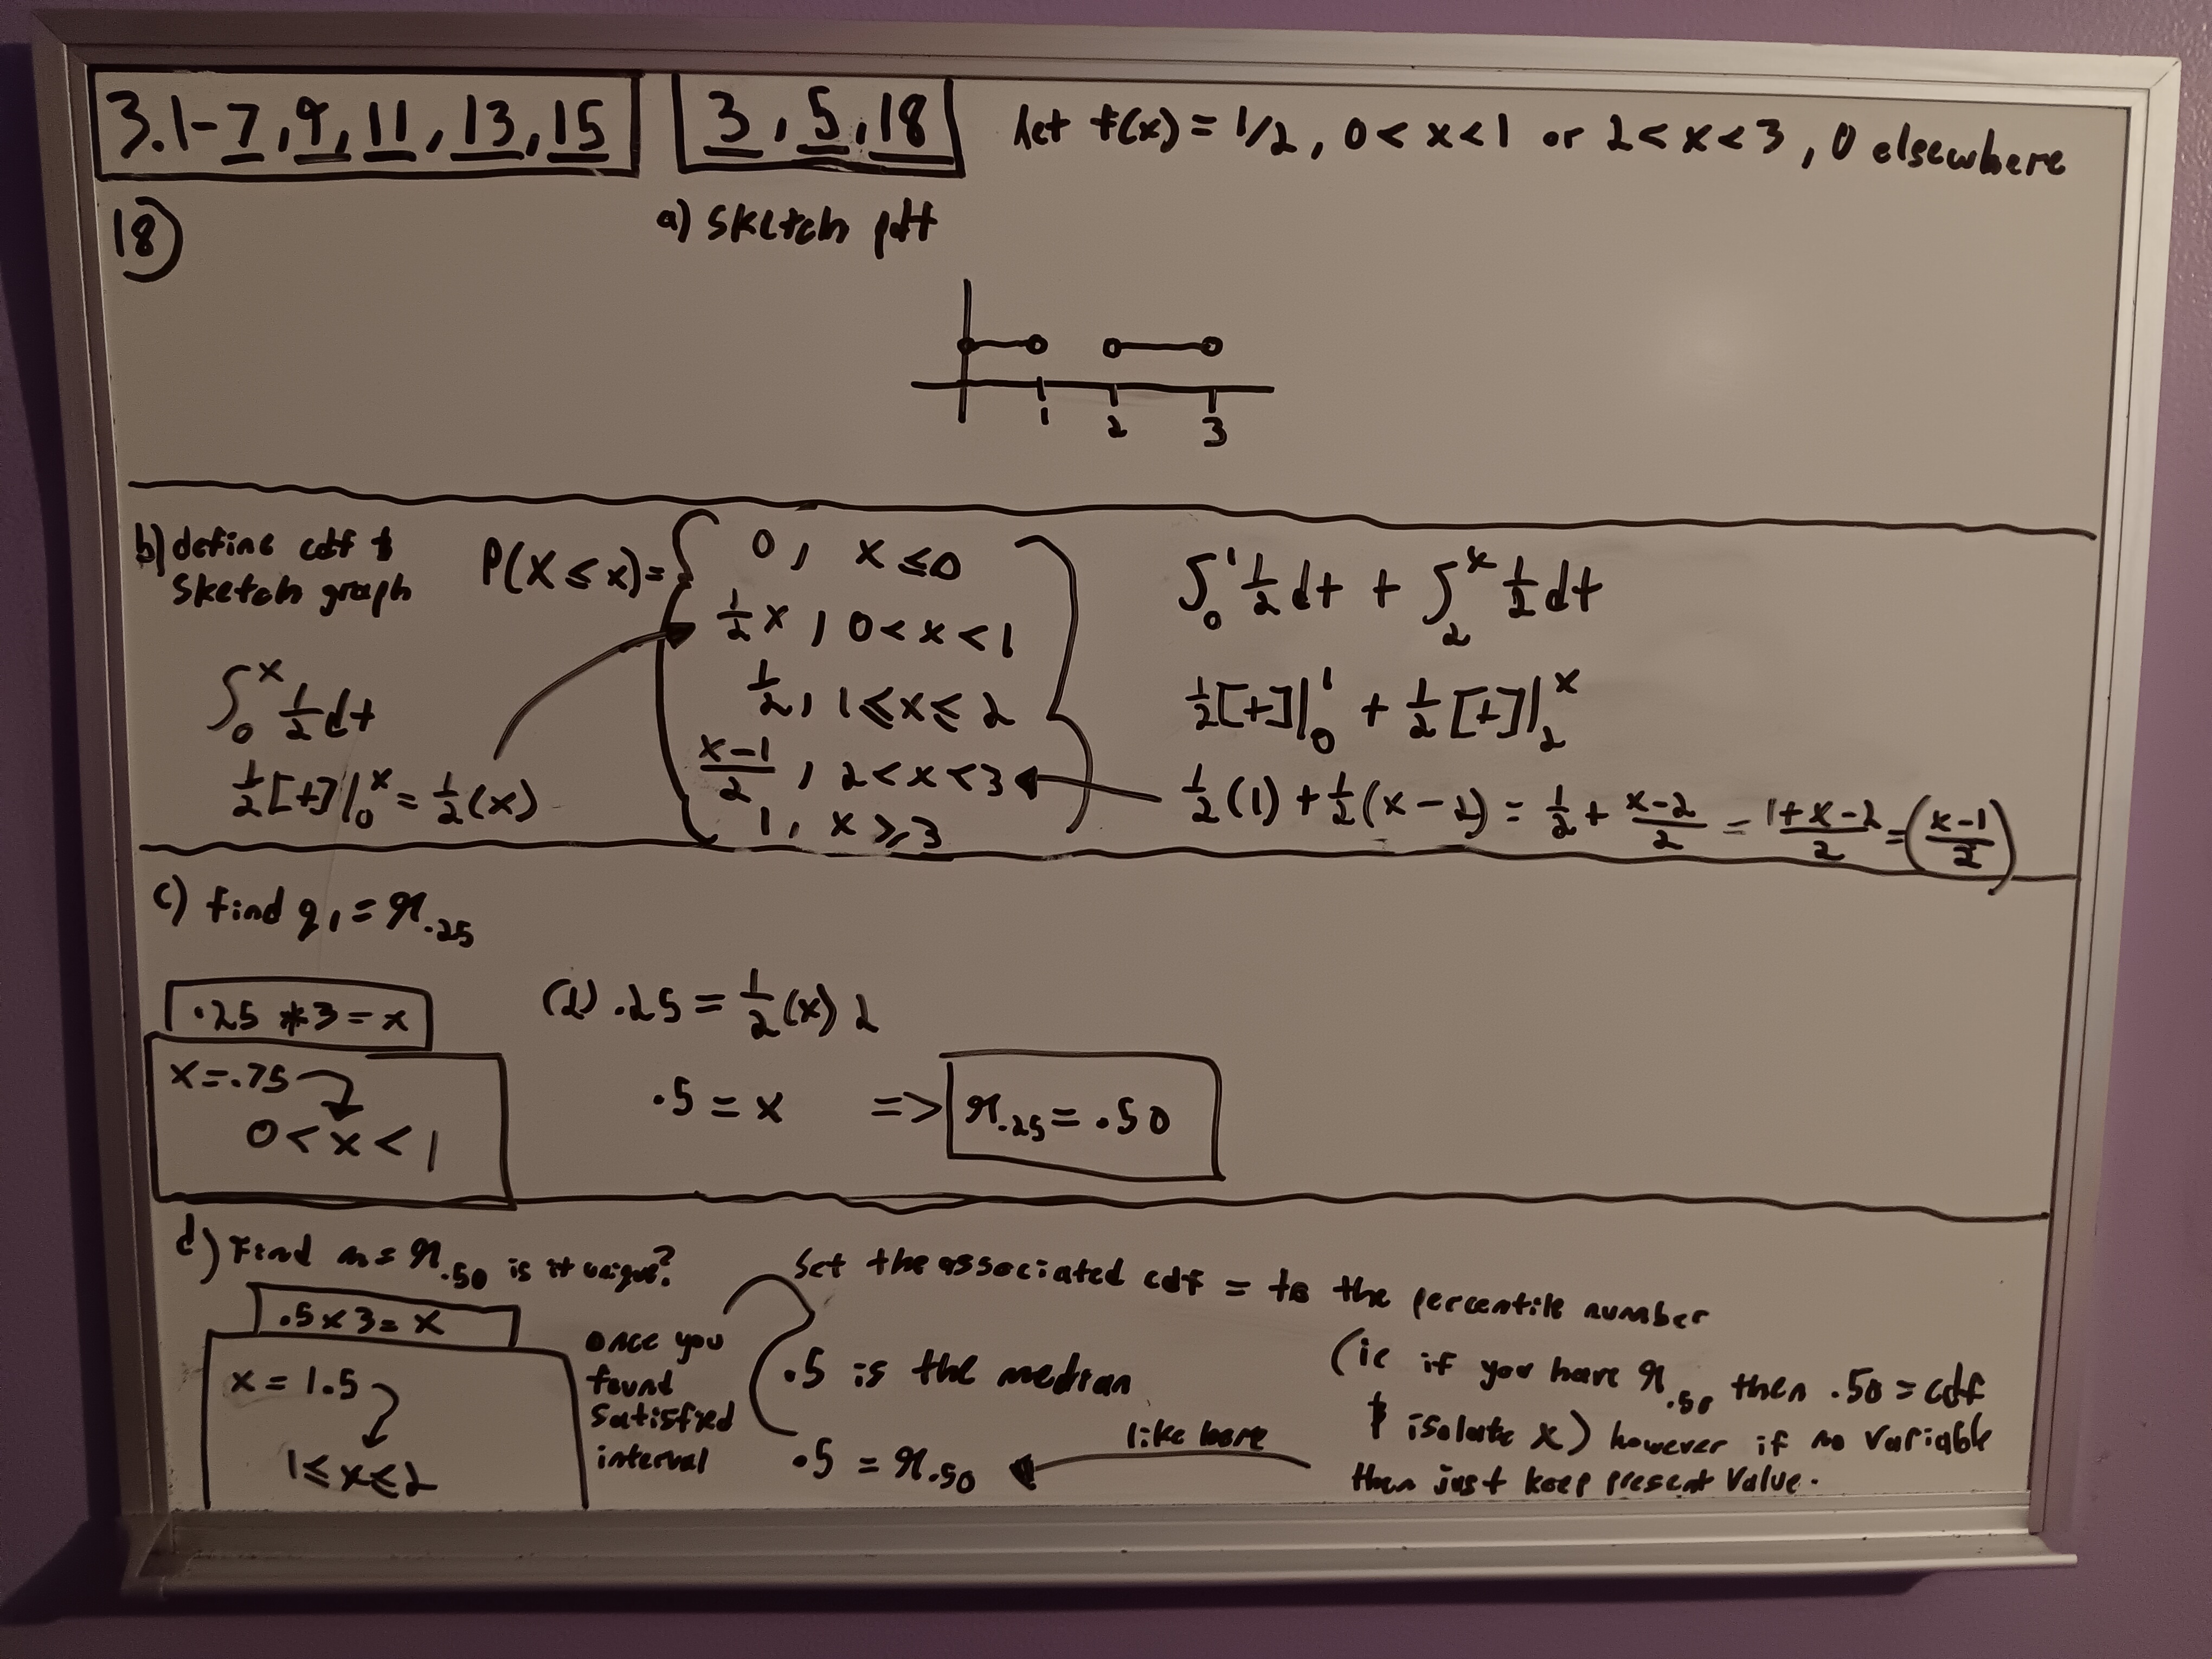 3.1-7, 9, 11, 13, 15
3, 5, 18
let f(x) = 1/2, 0 < x < 1 or 2 < x < 3, 0 elsewhere
18)
a) sketch pdf
1 2 3
b) define cdf &
sketch graph
P(X ≤ x) = { 0, x ≤ 0
1/2 x, 0 < x < 1
1/2, 1 ≤ x ≤ 2
(x-1)/2, 2 < x < 3
1, x ≥ 3
∫_0^x 1/2 dt
1/2 [t] |_0^x = 1/2 (x)
∫_0^1 1/2 dt + ∫_2^x 1/2 dt
1/2 [t] |_0^1 + 1/2 [t] |_2^x
1/2 (1) + 1/2 (x - 2) = 1/2 + (x-2)/2 = (1+x-2)/2 = ((x-1)/2)
c) find q_1 = π_.25
.25 * 3 = x
x = .75
0 < x < 1
(2) .25 = 1/2 (x) 2
.5 = x => π_.25 = .50
d) Find m = π_.50 is it unique?
.5 x 3 = x
x = 1.5
1 ≤ x ≤ 2
once you
found
satisfied
interval
Set the associated cdf = to the percentile number
.5 is the median
.5 = π_.50
like here
(ie if you have π_.50 then .50 = cdf
& isolate x) however if no variable
then just keep present value.